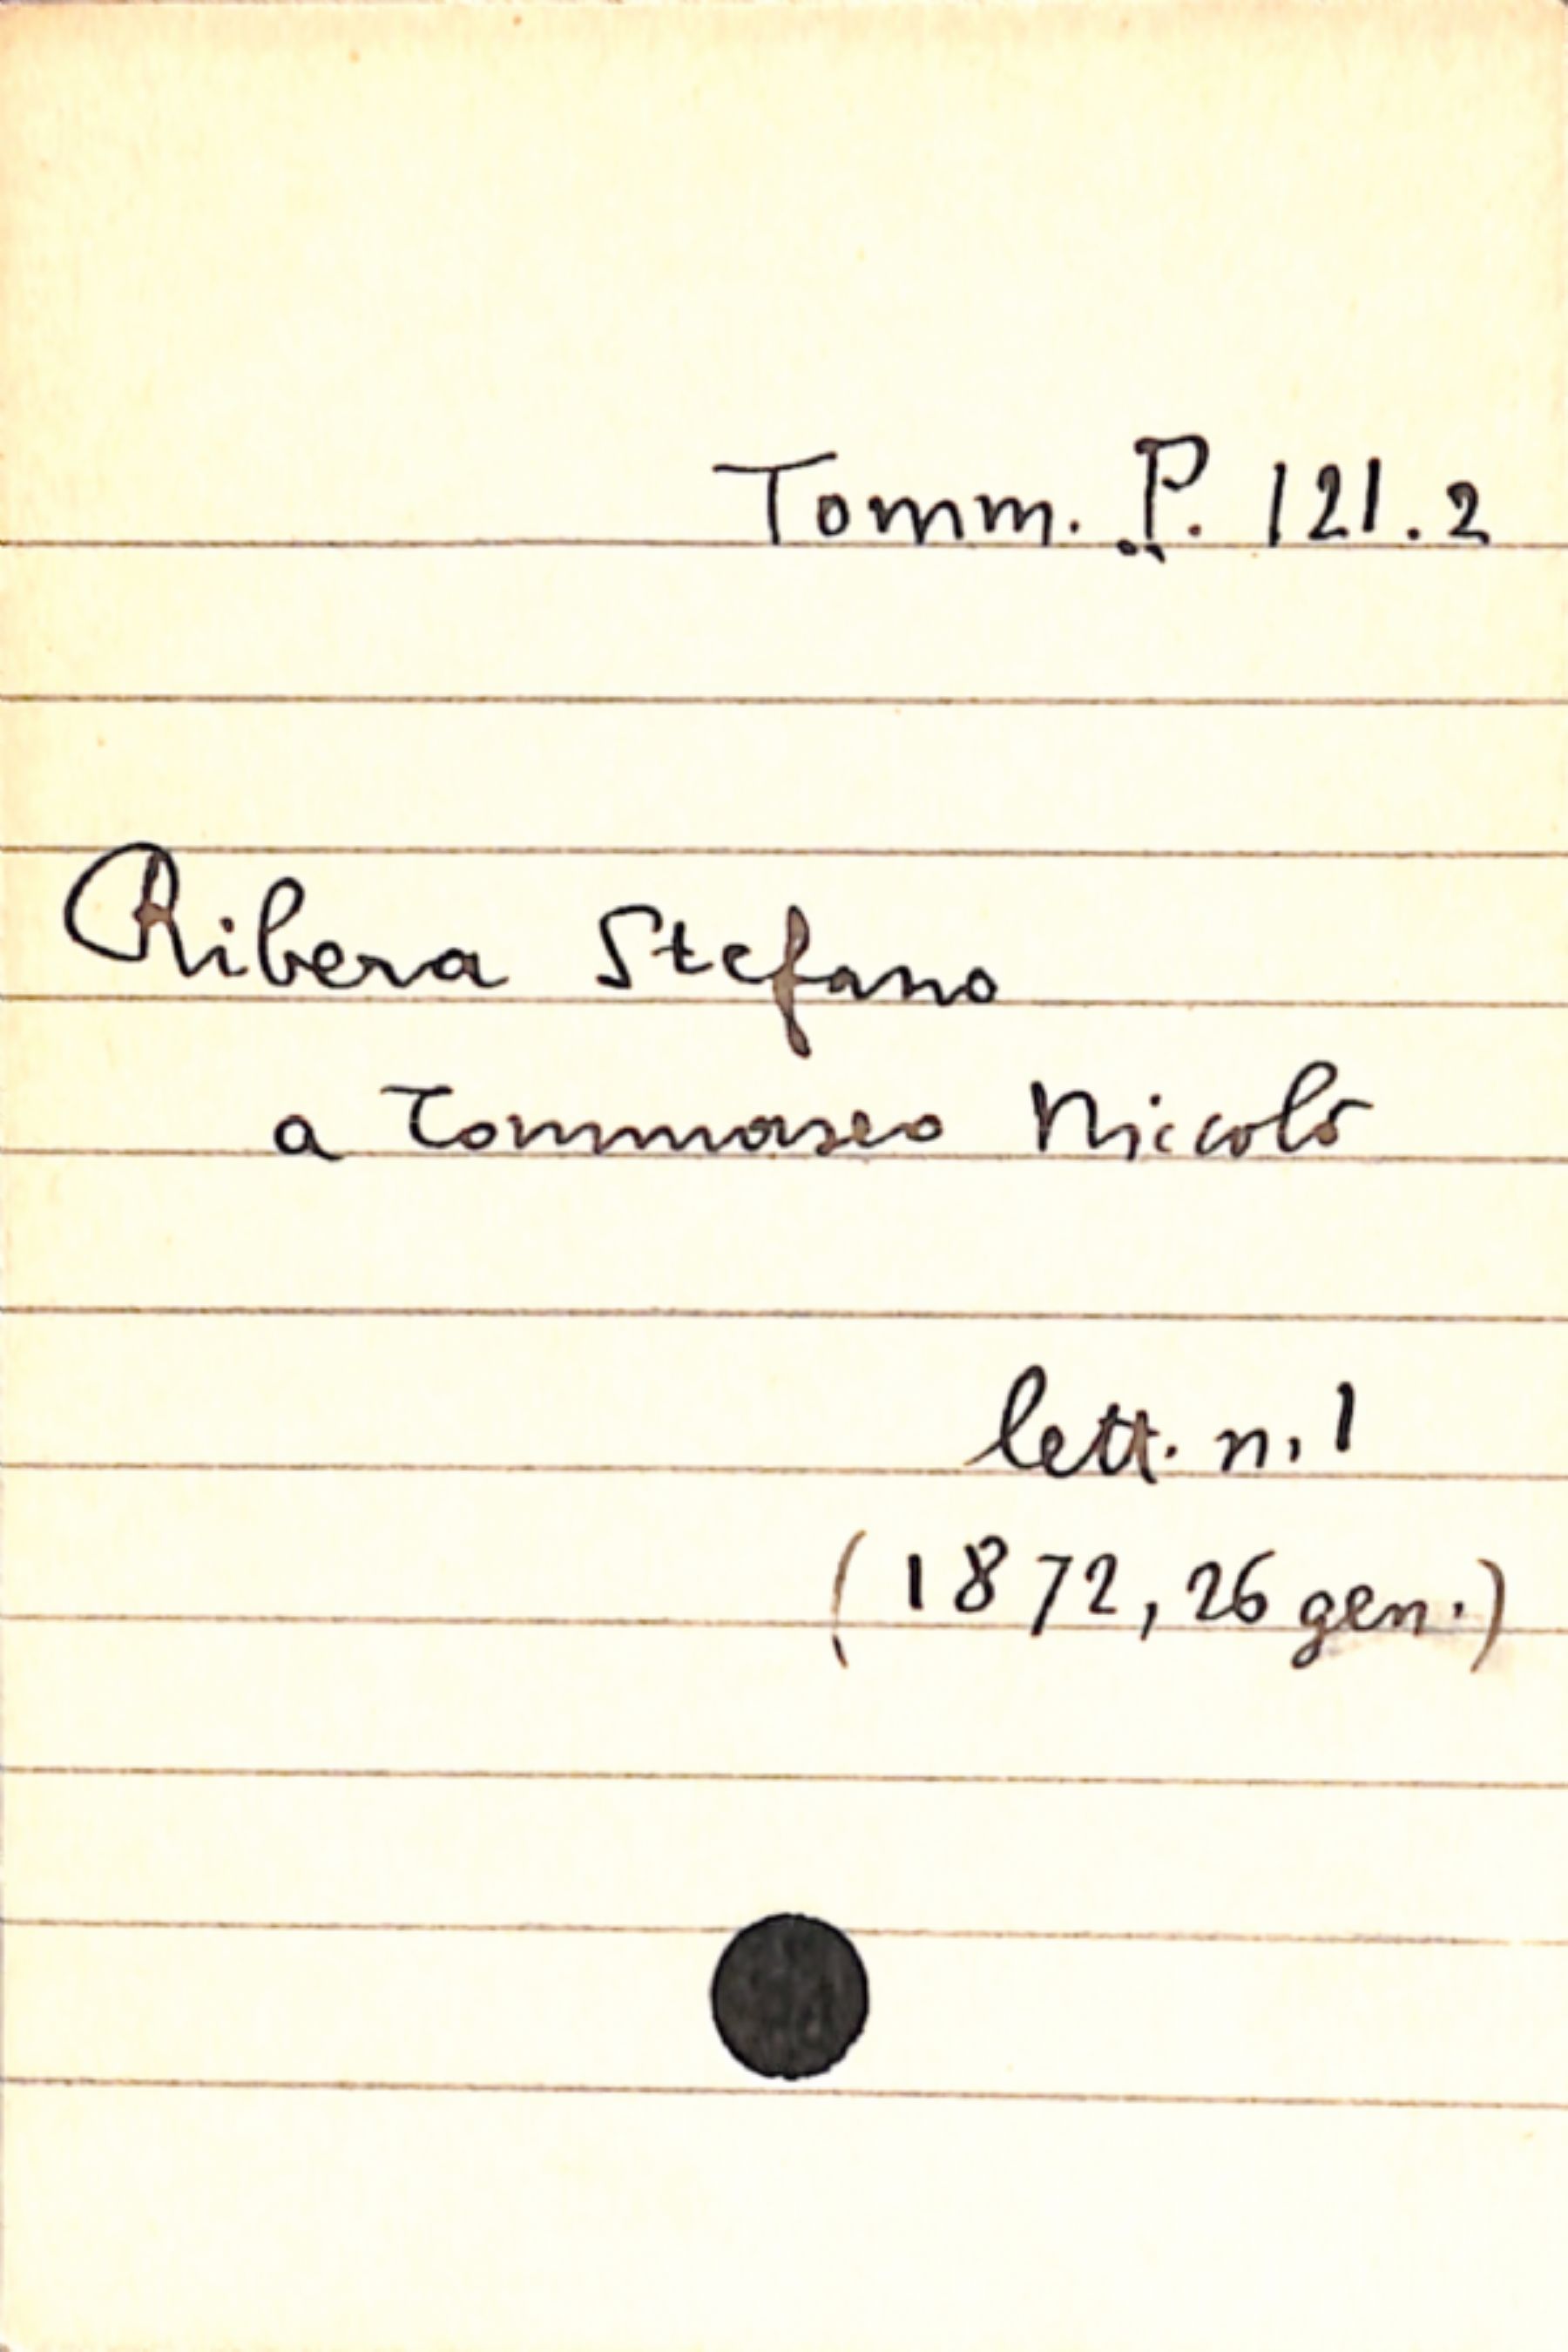 Tomm. P. 121.2
Ribera Stefano
a Tommaseo Niccolò
lett. n. 1
(1872, 26 gen.)